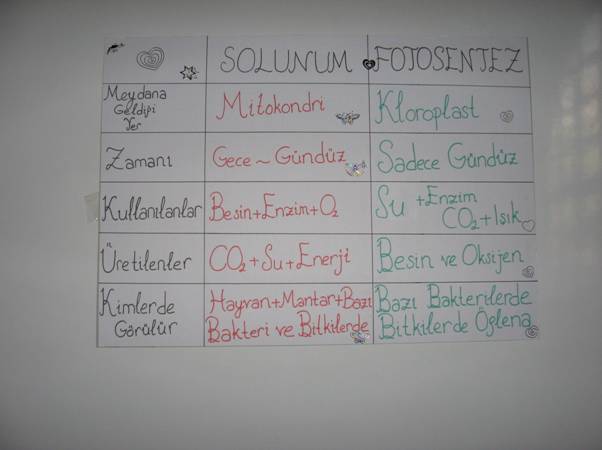 SOLUNUM FOTOSENTEZ
Meydana
Geldiği
Yer
Mitokondri
Kloroplast
Zamanı
Gece ~ Gündüz
Sadece Gündüz
Kullanılanlar
Besin+Enzim+O₂
Su +Enzim
CO₂+Işık
Üretilenler
CO₂+Su+Enerji
Besin ve Oksijen
Kimlerde
Görülür
Hayvan+Mantar+Bazı
Bakteri ve Bitkilerde
Bazı Bakterilerde
Bitkilerde Öglena